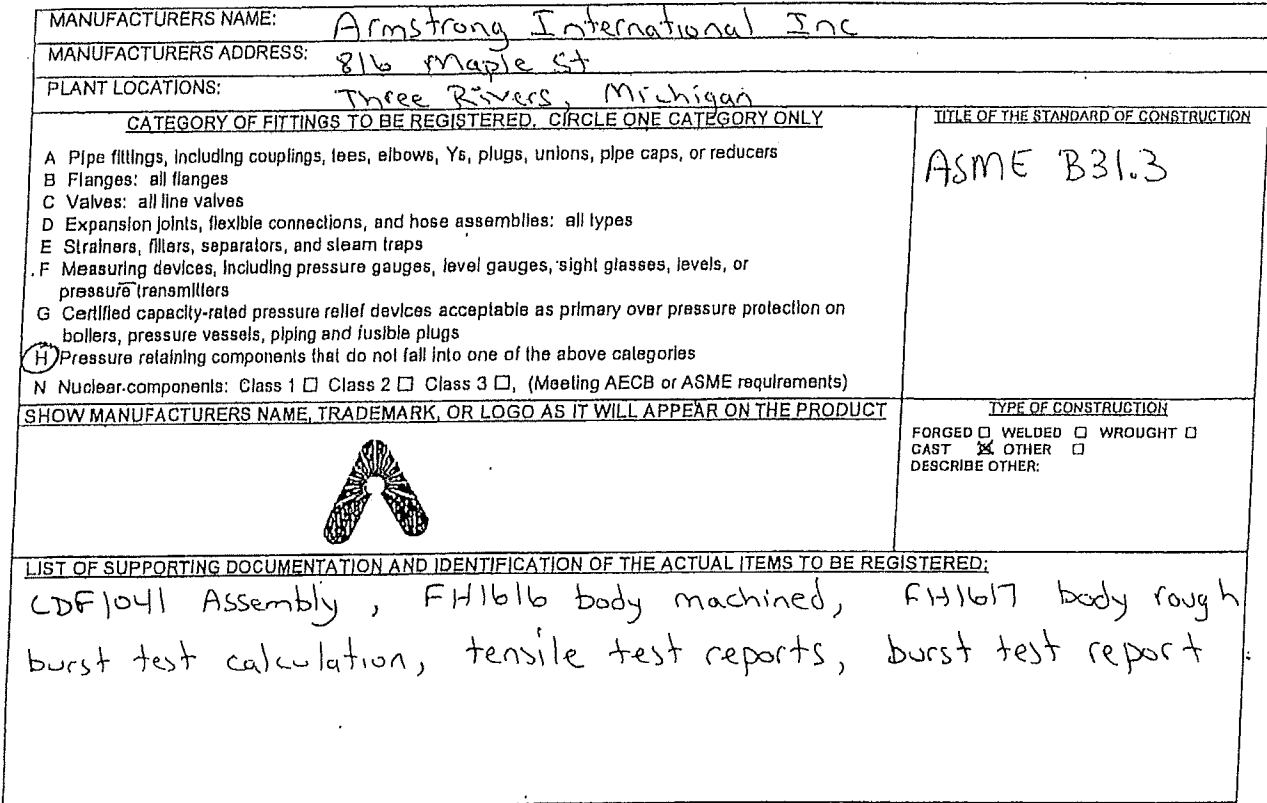 MANUFACTURERS NAME: Armstrong International Inc
MANUFACTURERS ADDRESS: 816 Maple St
PLANT LOCATIONS: Three Rivers, Michigan
CATEGORY OF FITTINGS TO BE REGISTERED. CIRCLE ONE CATEGORY ONLY
A Pipe fittings, including couplings, tees, elbows, Ys, plugs, unions, pipe caps, or reducers
B Flanges: all flanges
C Valves: all line valves
D Expansion joints, flexible connections, and hose assemblies: all types
E Strainers, filters, separators, and steam traps
F Measuring devices, including pressure gauges, level gauges, sight glasses, levels, or
pressure transmitters
G Certified capacity-rated pressure relief devices acceptable as primary over pressure protection on
boilers, pressure vessels, piping and fusible plugs
H Pressure retaining components that do not fall into one of the above categories
N Nuclear components: Class 1 ☐ Class 2 ☐ Class 3 ☐, (Meeting AECB or ASME requirements)
TITLE OF THE STANDARD OF CONSTRUCTION
ASME B31.3
SHOW MANUFACTURERS NAME, TRADEMARK, OR LOGO AS IT WILL APPEAR ON THE PRODUCT
TYPE OF CONSTRUCTION
FORGED ☐ WELDED ☐ WROUGHT ☐
CAST ☒ OTHER ☐
DESCRIBE OTHER:
LIST OF SUPPORTING DOCUMENTATION AND IDENTIFICATION OF THE ACTUAL ITEMS TO BE REGISTERED:
CDF1041 Assembly, FH1616 body machined, FH1617 body rough
burst test calculation, tensile test reports, burst test report